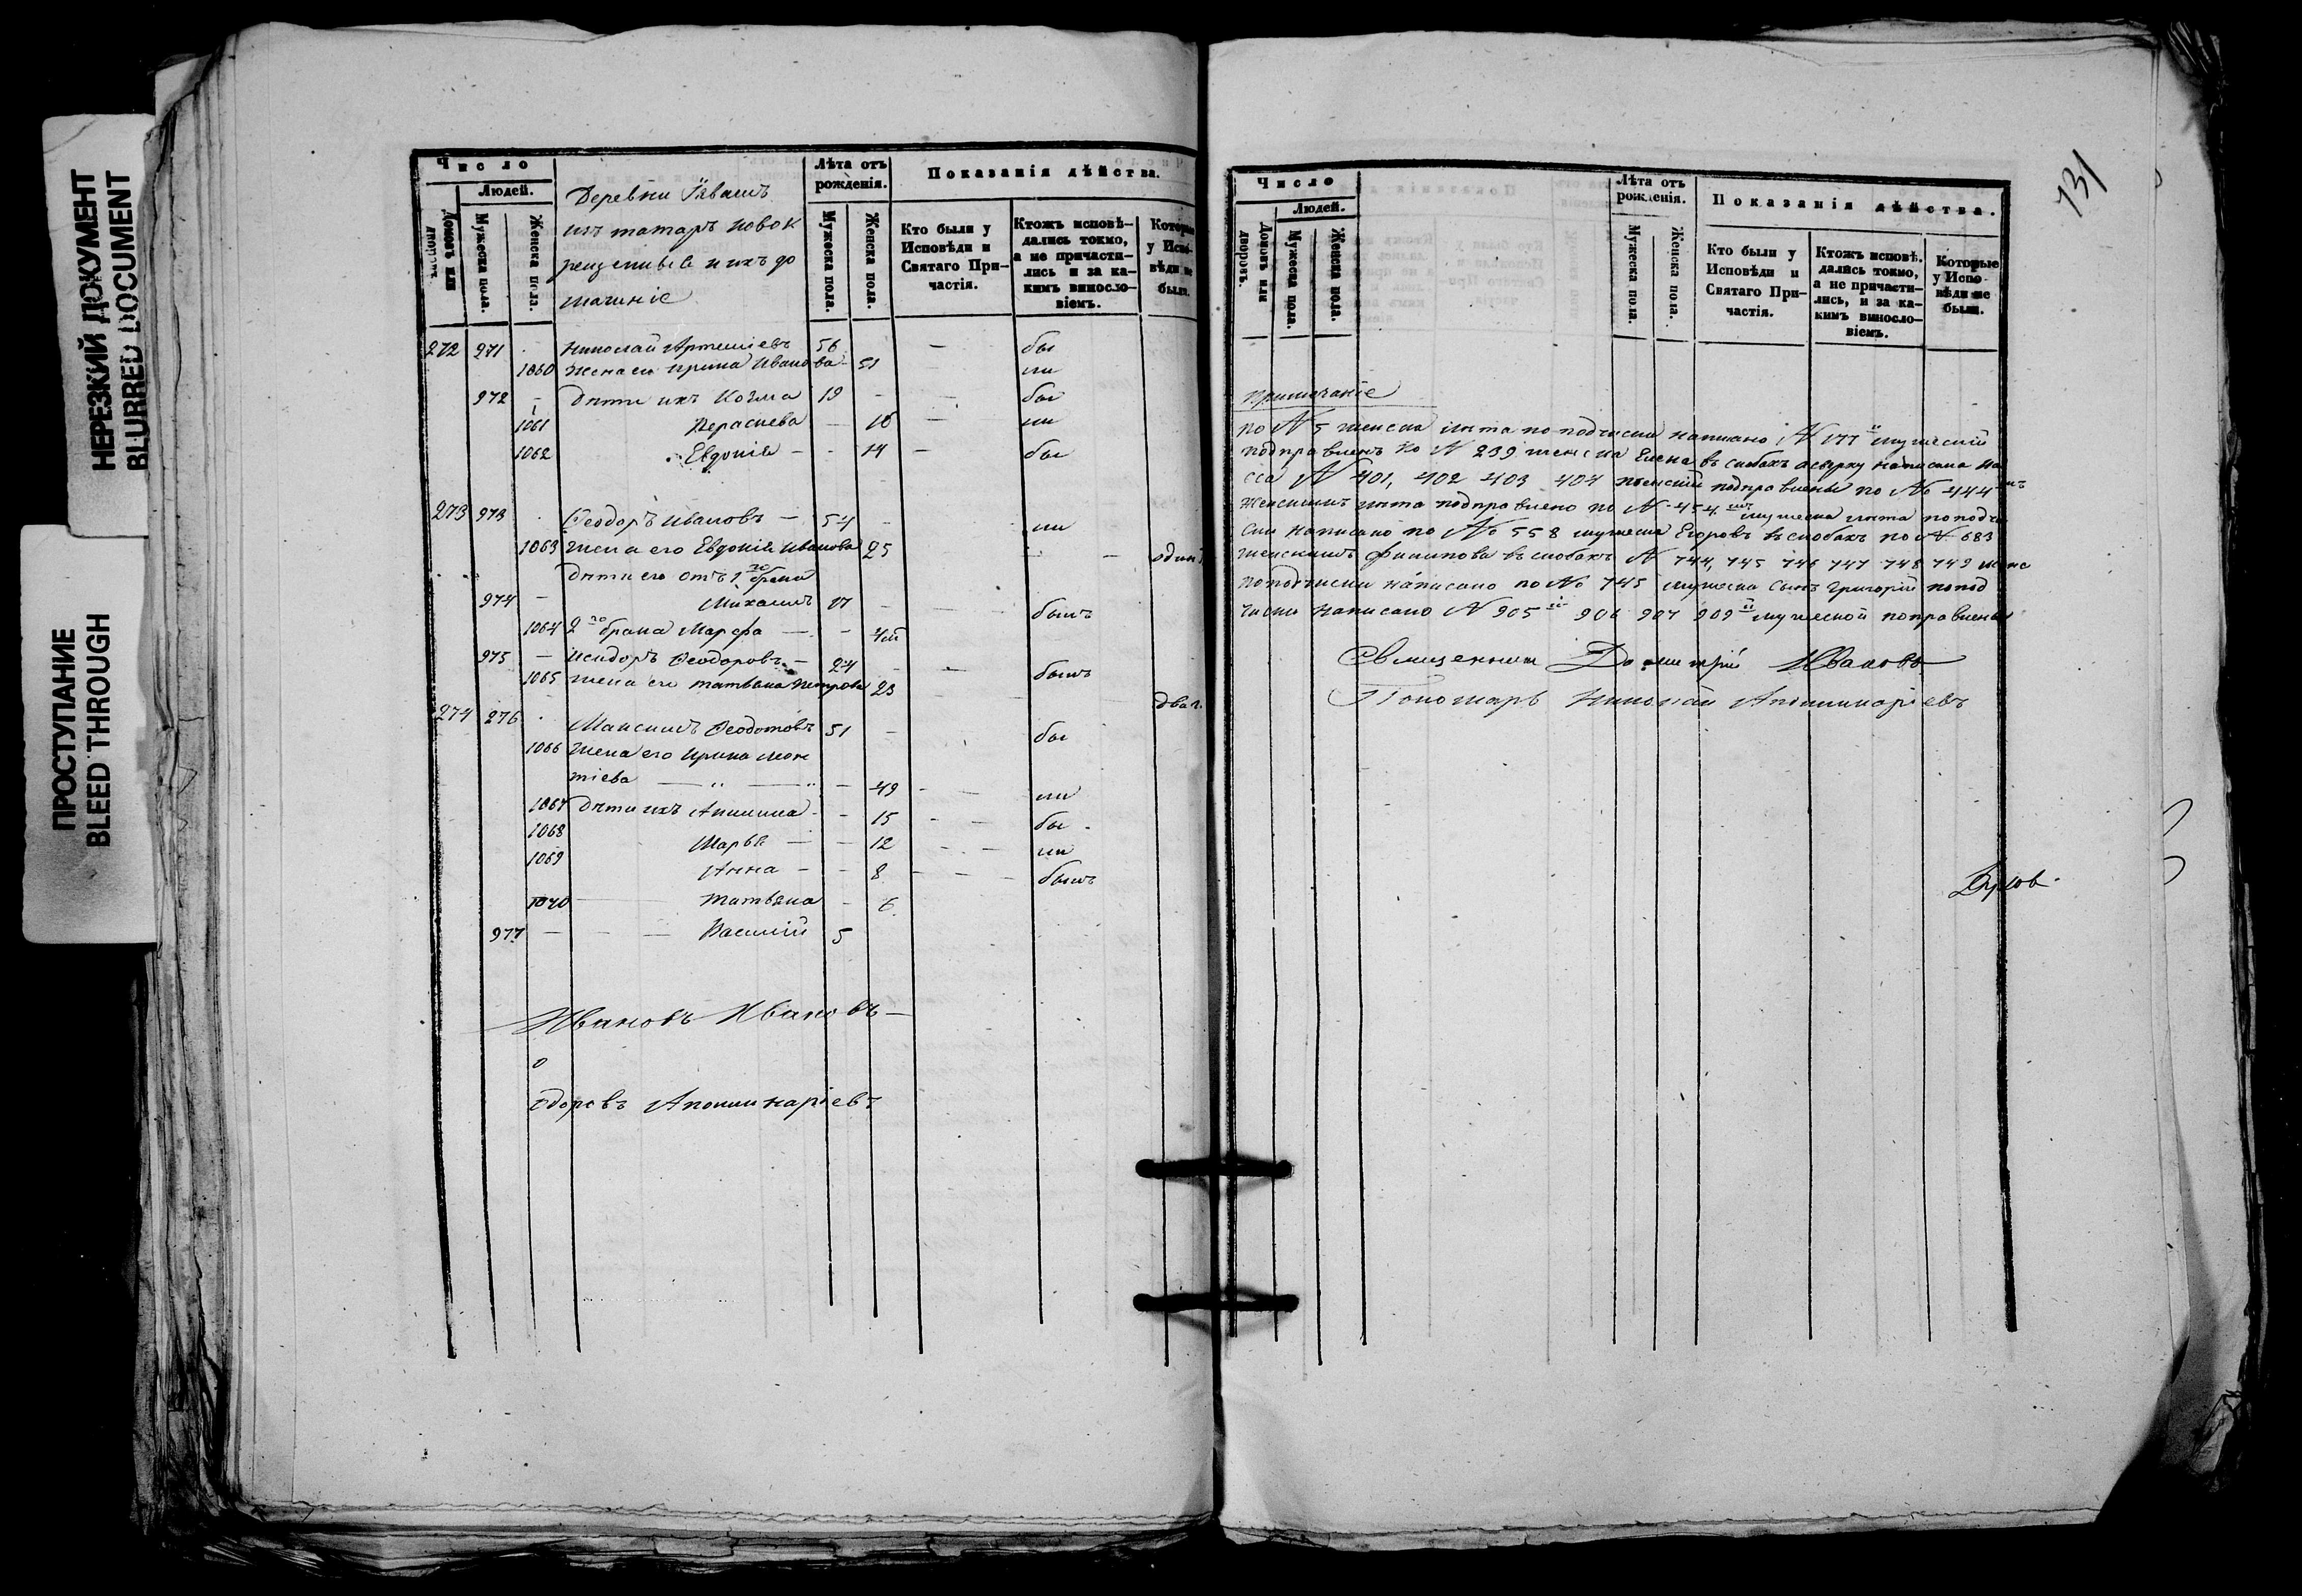 НЕРЕЗКИЙ ДОКУМЕНТ
BLURRED DOCUMENT
ПРОСТУПАНИЕ
BLEED THROUGH
Число
Людей.
Домовъ или дворовъ.
Мужеска пола.
Женска пола.
Деревни
изъ татаръ новок
рещенныя и ихъ до
машніе
Лѣта отъ рожденія.
Мужеска пола.
Женска пола.
Показанія дѣйства.
Кто были у Исповѣди и Святаго Причастія.
Ктожъ исповѣдались токмо, а не причастились и за какимъ винословіемъ.
Которые у Исповѣди не были.
272 971 Николай Артемьевъ 56 бы
1060 жена его Ирина Иванова 51 ли
972 – дѣти ихъ Козма 19 бы
1061 16 ли
1062 Евдокія 14 бы
273 973 Ѳеодоръ Ивановъ – 54 ли
1063 жена его Евдокія Иванова 25 один
дѣти его отъ 1го брака
974 – Михаилъ 17 былъ
1064 2го брака Марфа
975 – Исидоръ Ѳеодоровъ – 24 былъ
1065 жена его Татьяна Петрова 23
274 976 Максимъ Ѳеодотовъ 51 бы
1066 жена его Ирина
тіева – 49 ли
1067 дѣти ихъ Акилина 15 бы
1068 Марья – 12 ли
1069 Анна – 8 былъ
1070 Татьяна 6
977 Василій 5
Ивановъ Ивановъ
о
едоровъ Аполинаріевъ
131
Число
Людей.
Домовъ или дворовъ.
Мужеска пола.
Женска пола.
Лѣта отъ рожденія.
Мужеска пола.
Женска пола.
Показанія дѣйства.
Кто были у Исповѣди и Святаго Причастія.
Ктожъ исповѣдались токмо, а не причастились, и за какимъ винословіемъ.
Которые у Исповѣди не были.
Примечаніе
по № 5 женска лѣта по подчистки написано № 177 мужеской
подправленъ по № 239 женска Елена въ скобахъ а сверху написана
№ 401, 402 403 404 женскій подправлены по № 444
женскимъ лѣта подправлено по № 454 мужеска лѣта по подчи
стки написано по № 558 мужеска Егоровъ въ скобахъ по № 683
женскимъ Филипова въ скобахъ № 744, 745 746 747 748 749
по подчистки написано по № 745 мужеска сынъ Григорій по под
чистки написано № 905 906 907 909 мужеской поправлены
Священникъ Димитрій Ивановъ
Пономарь Николай Аполинаріевъ